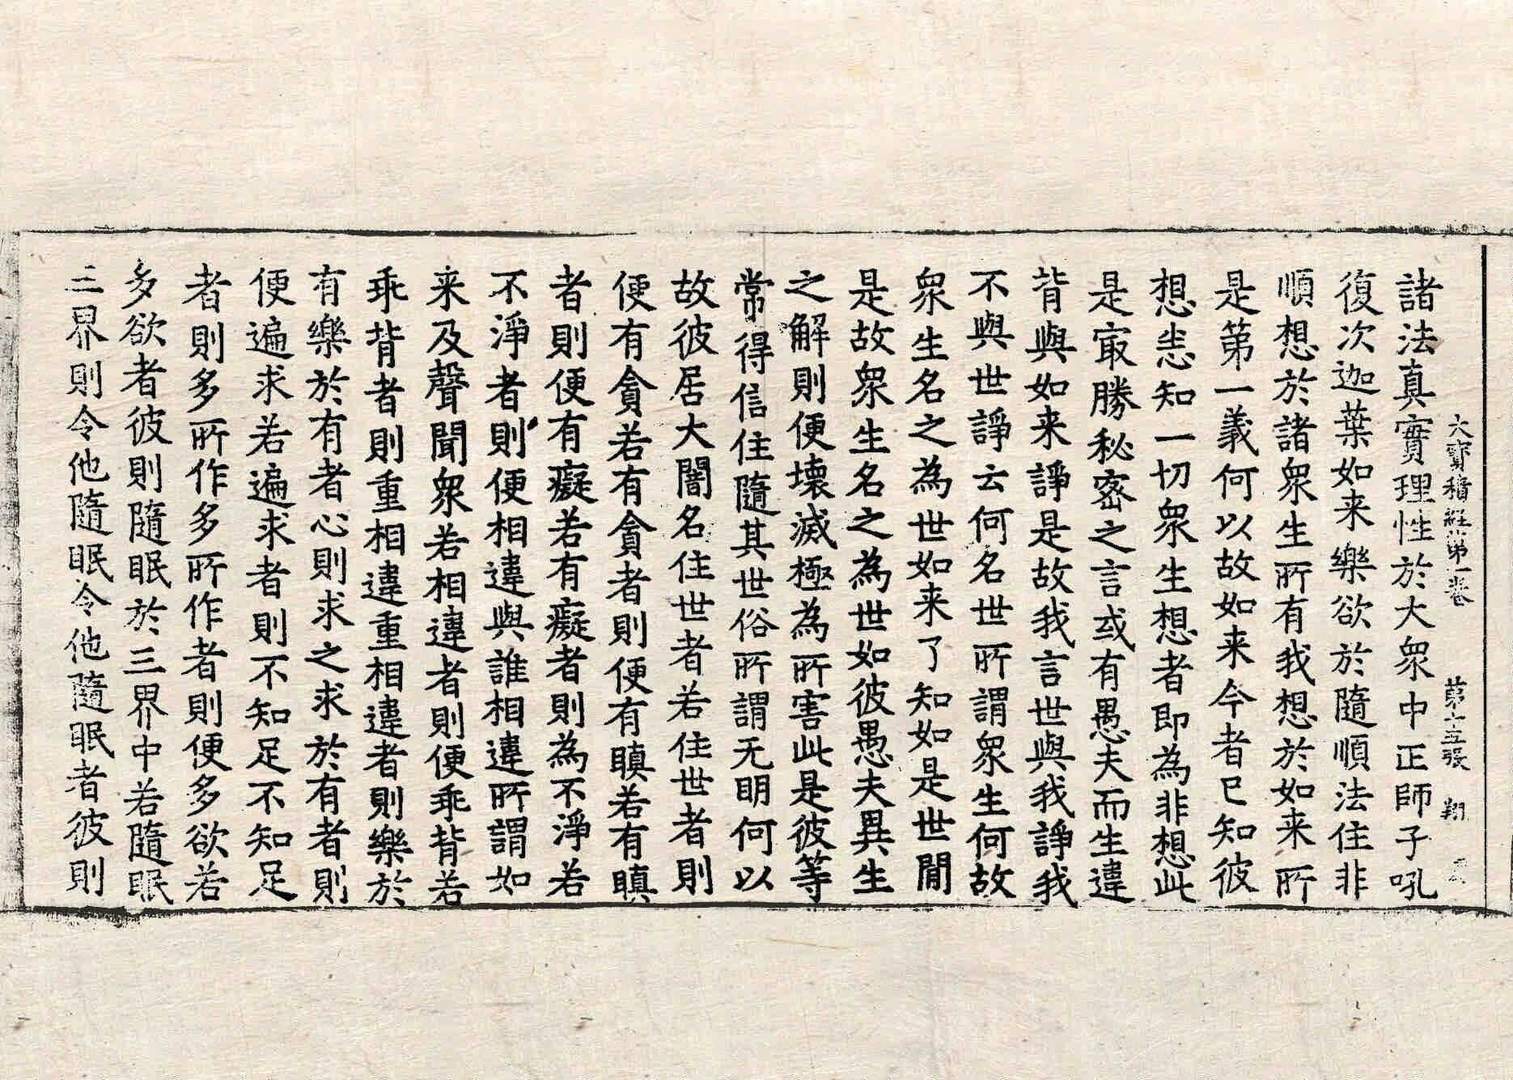 大寶積經第一卷 第十五張 翔
諸法真實理性於大衆中正師子吼
復次迦葉如来樂欲於隨順法住非
順想於諸衆生所有我想於如来所
是第一義何以故如来今者已知彼
想恙知一切衆生想者即為非想此
是㝡勝秘密之言或有愚夫而生違
背與如来諍是故我言世與我諍我
不與世諍云何名世所謂衆生何故
衆生名之為世如来了知如是世間
是故衆生名之為世如彼愚夫異生
之解則便壊滅極為所害此是彼等
常得信住隨其世俗所謂无明何以
故彼居大闇名住世者若住世者則
便有貪若有貪者則便有瞋若有瞋
者則便有癡若有癡者則為不淨若
不淨者則便相違與誰相違所謂如
来及聲聞衆若相違者則便乖背若
乖背者則重相違重相違者則樂於
有樂於有者心則求之求於有者則
便遍求若遍求者則不知足不知足
者則多所作多所作者則便多欲若
多欲者彼則隨眠於三界中若隨眠
三界則令他隨眠令他隨眠者彼則